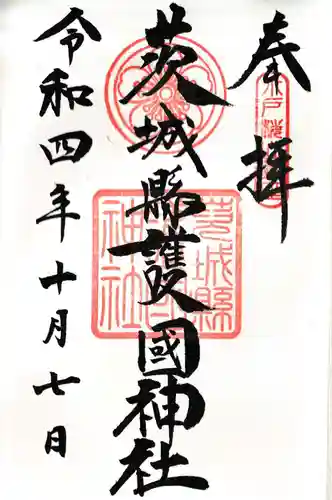 奉拝
水戸
茨城縣護國神社
茨城縣護國神社
令和四年十月七日